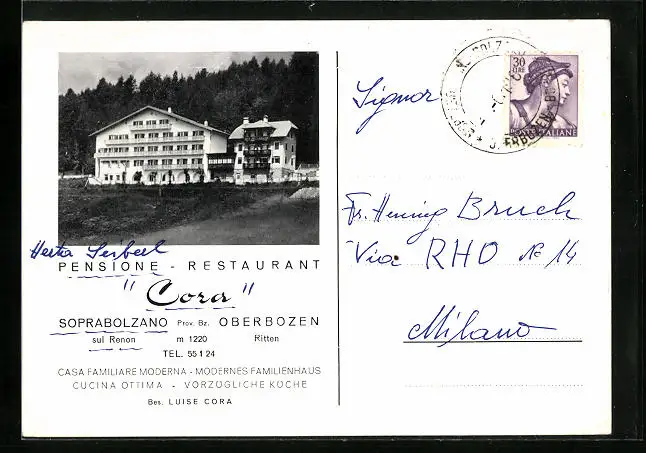 Herta Seiberl
PENSIONE - RESTAURANT
"Cora"
SOPRABOLZANO Prov. Bz. OBERBOZEN
sul Renon m 1220 Ritten
TEL. 55 1 24
CASA FAMILIARE MODERNA - MODERNES FAMILIENHAUS
CUCINA OTTIMA - VORZÜGLICHE KÜCHE
Bes. LUISE CORA
30
LIRE
POSTE ITALIANE
Signor
Fr. Henning Bruch
Via RHO No 14
Milano